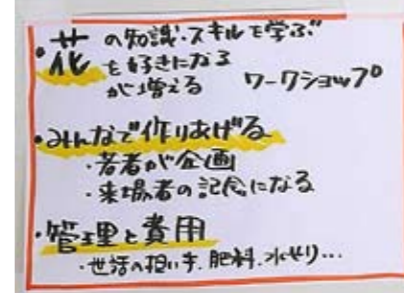 ・花 の知識・スキルを学ぶ
を好きになる
が増える ワークショップ
・みんなで作りあげる
・若者が企画
・来場者の記念になる
・管理と費用
・世話の担い手.肥料.水やり...